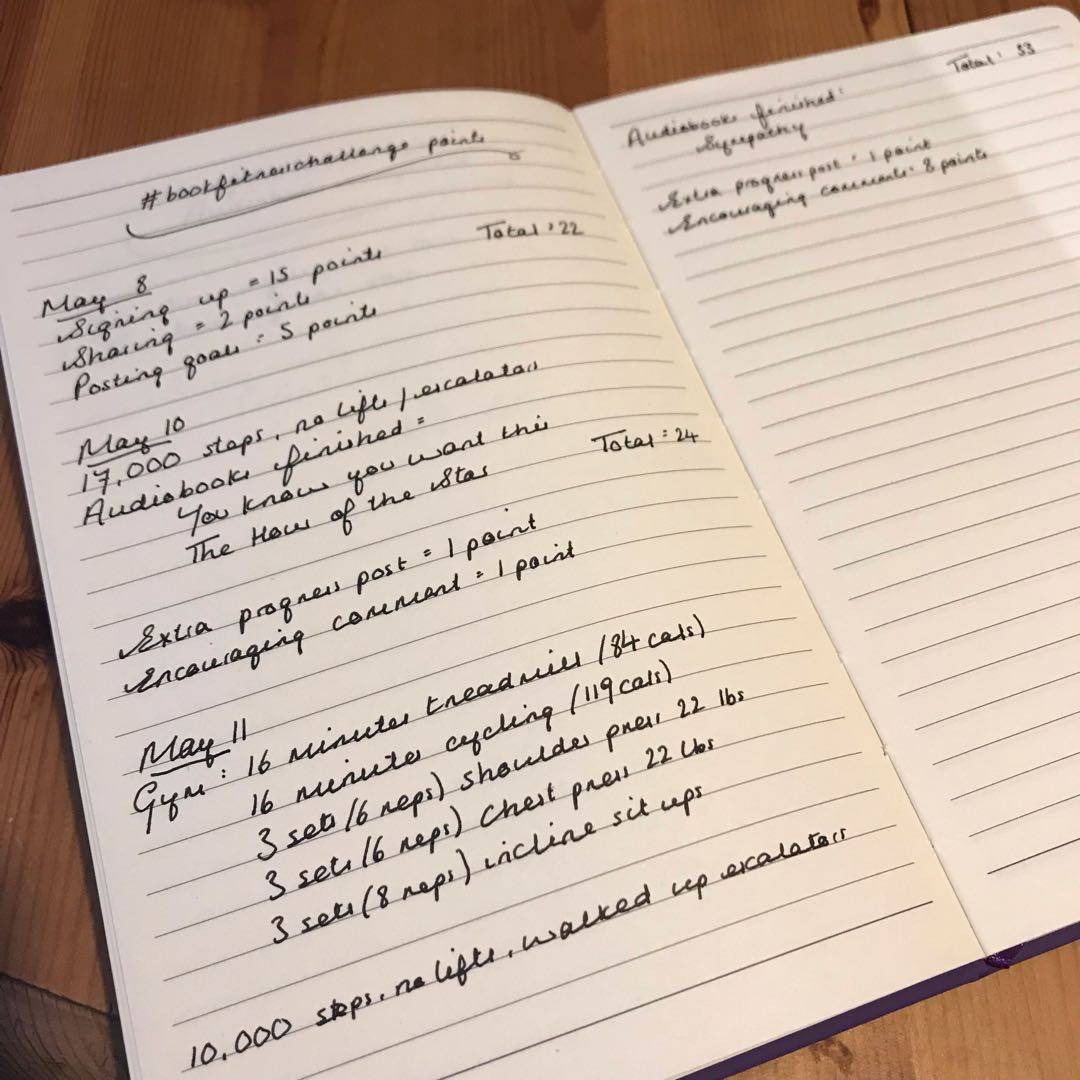 #bookfitnesschallenge points
Total: 22
May 8
Signing up = 15 points
Sharing = 2 points
Posting goals = 5 points
May 10
17,000 steps, no lifts/escalators
Audiobooks finished =
You know you want this
The Hour of the Star
Total = 24
Extra progress post = 1 point
Encouraging comment = 1 point
May 11
Gym: 16 minutes treadmill (84 cals)
16 minutes cycling (119 cals)
3 sets (6 reps) shoulder press 22 lbs
3 sets (6 reps) chest press 22 lbs
3 sets (8 reps) incline sit ups
10,000 steps, no lifts, walked up escalators
Total: 33
Audiobooks finished:
Sympathy
Extra progress post = 1 point
Encouraging comments = 8 points